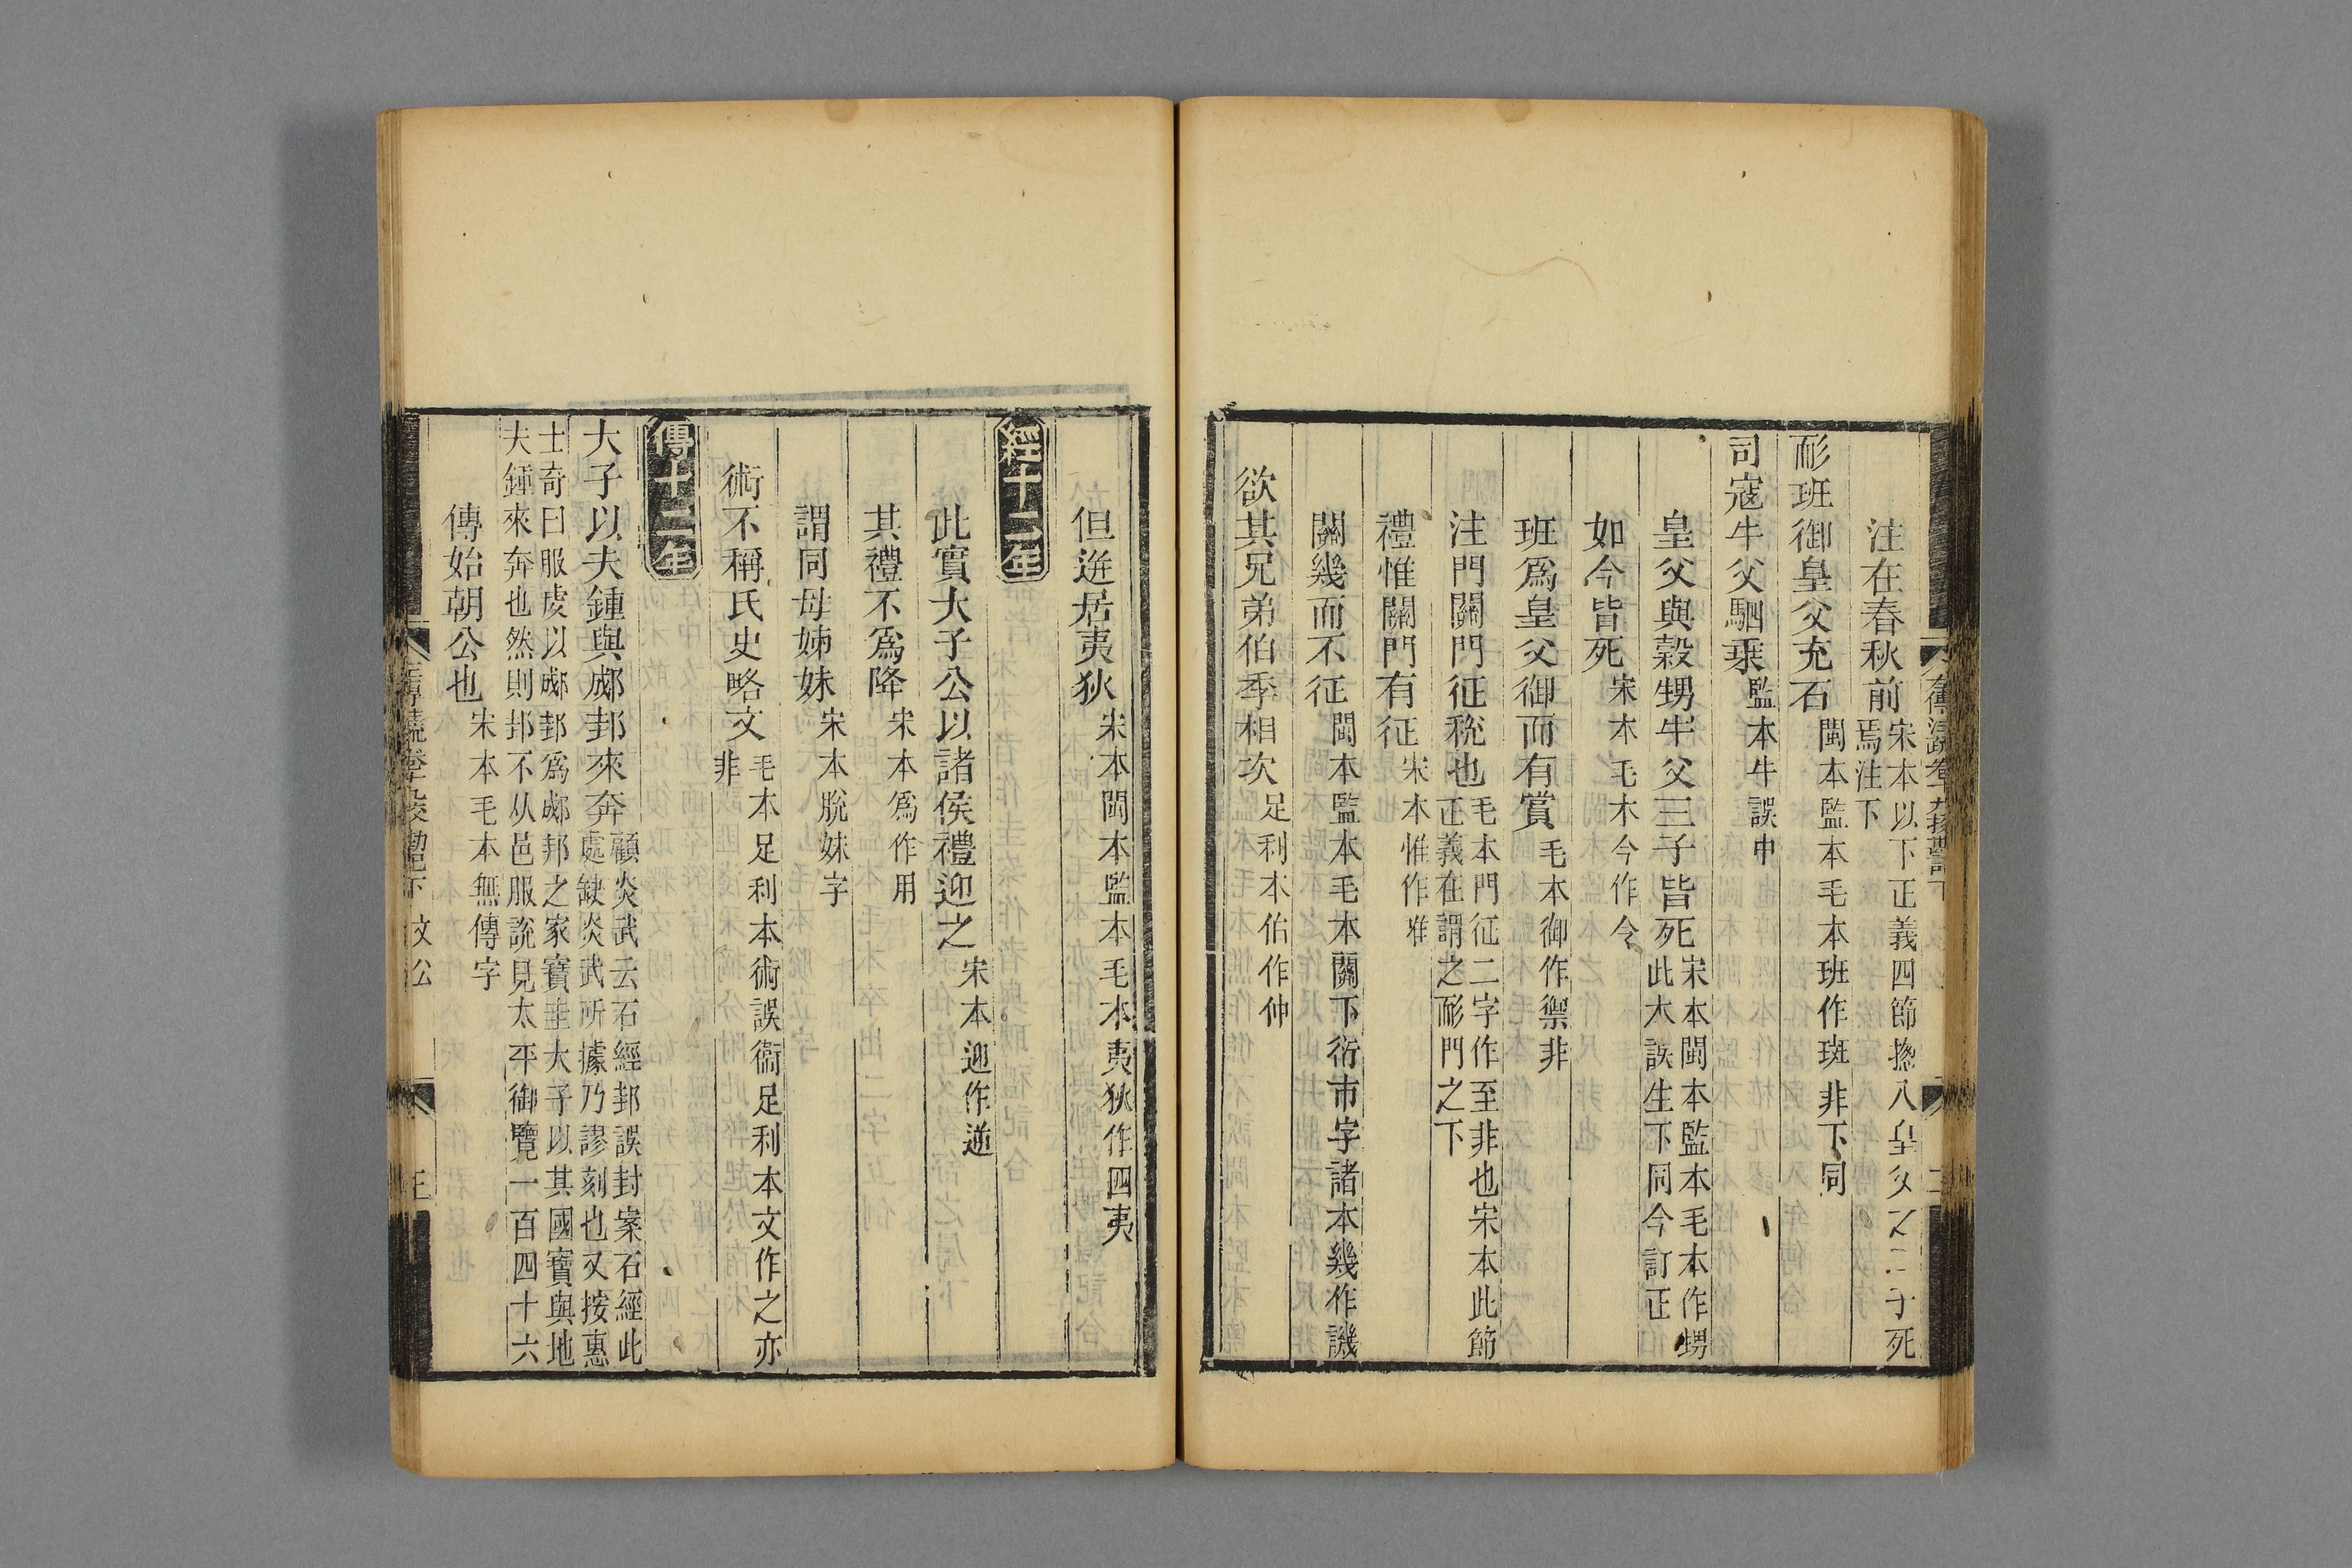 注在春秋前宋本以下正義四節揔入皇父之二子死焉注下
耏班御皇父充石閩本監本毛本班作斑非下同
司寇牛父駟乗監本牛誤中
皇父與穀甥牛父三子皆死宋本閩本監本毛本作甥此本誤生下同今訂正
如今皆死宋本毛本今作令
班爲皇父御而有賞毛本御作禦非
注門關門征稅也毛本門征二字作至非也宋本此節正義在謂之耏門之下
禮惟關門有征宋本惟作唯
關幾而不征閩本監本毛本關下衍市字諸本幾作譏
欲其兄弟伯季相次足利本伯作仲
但逬居夷狄宋本閩本監本毛本夷狄作四夷
經十二年
此實大子公以諸侯禮迎之宋本迎作逆
其禮不爲降宋本爲作用
謂同母姊妹宋本脫妹字
術不稱氏史略文毛本足利本術誤衞足利本文作之亦非
傳十二年
大子以夫鍾與郕邽來奔顧炎武云石經邽誤封案石經此處缺炎武所據乃謬刻也又按惠
士奇曰服虔以郕邽爲郕邦之家寶圭大子以其國寶與地夫鍾來奔也然則邽不从邑服說見太平御覽一百四十六
傳始朝公也宋本毛本無傳字